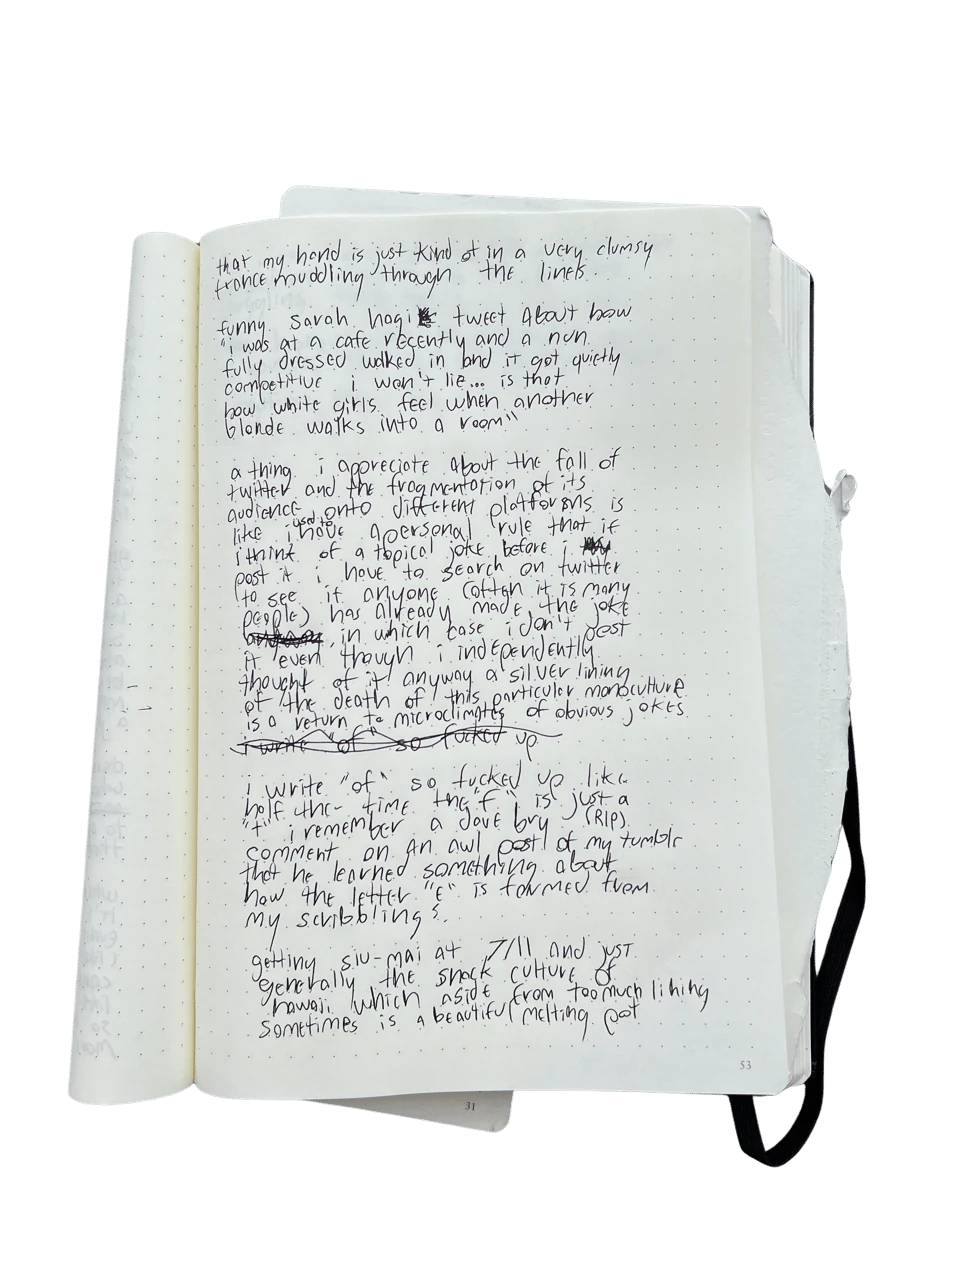 that my hand is just kind of in a very clumsy
trance muddling through the lines
funny sarah hagi tweet about how
"i was at a cafe recently and a nun
fully dressed walked in and it got quietly
competitive i won't lie... is that
how white girls feel when another
blonde walks into a room"
a thing i appreciate about the fall of
twitter and the fragmentation of its
audience onto different platforms is
like i used to have a personal rule that if
i think of a topical joke before i
post it i have to search on twitter
to see if anyone (often it is many
people) has already made the joke
in which case i don't post
it even though i independently
thought of it! anyway a silver lining
of the death of this particular monoculture
is a return to microclimates of obvious jokes
i write "of" so fucked up
i write "of" so fucked up like
half the time the "f" is just a
"t" i remember a dave bry (RIP)
comment on an awl post of my tumblr
that he learned something about
how the letter "E" is formed from
my scribblings
getting siu-mai at 7/11 and just
generally the snack culture of
hawaii which aside from too much lihing
sometimes is a beautiful melting pot
53
31